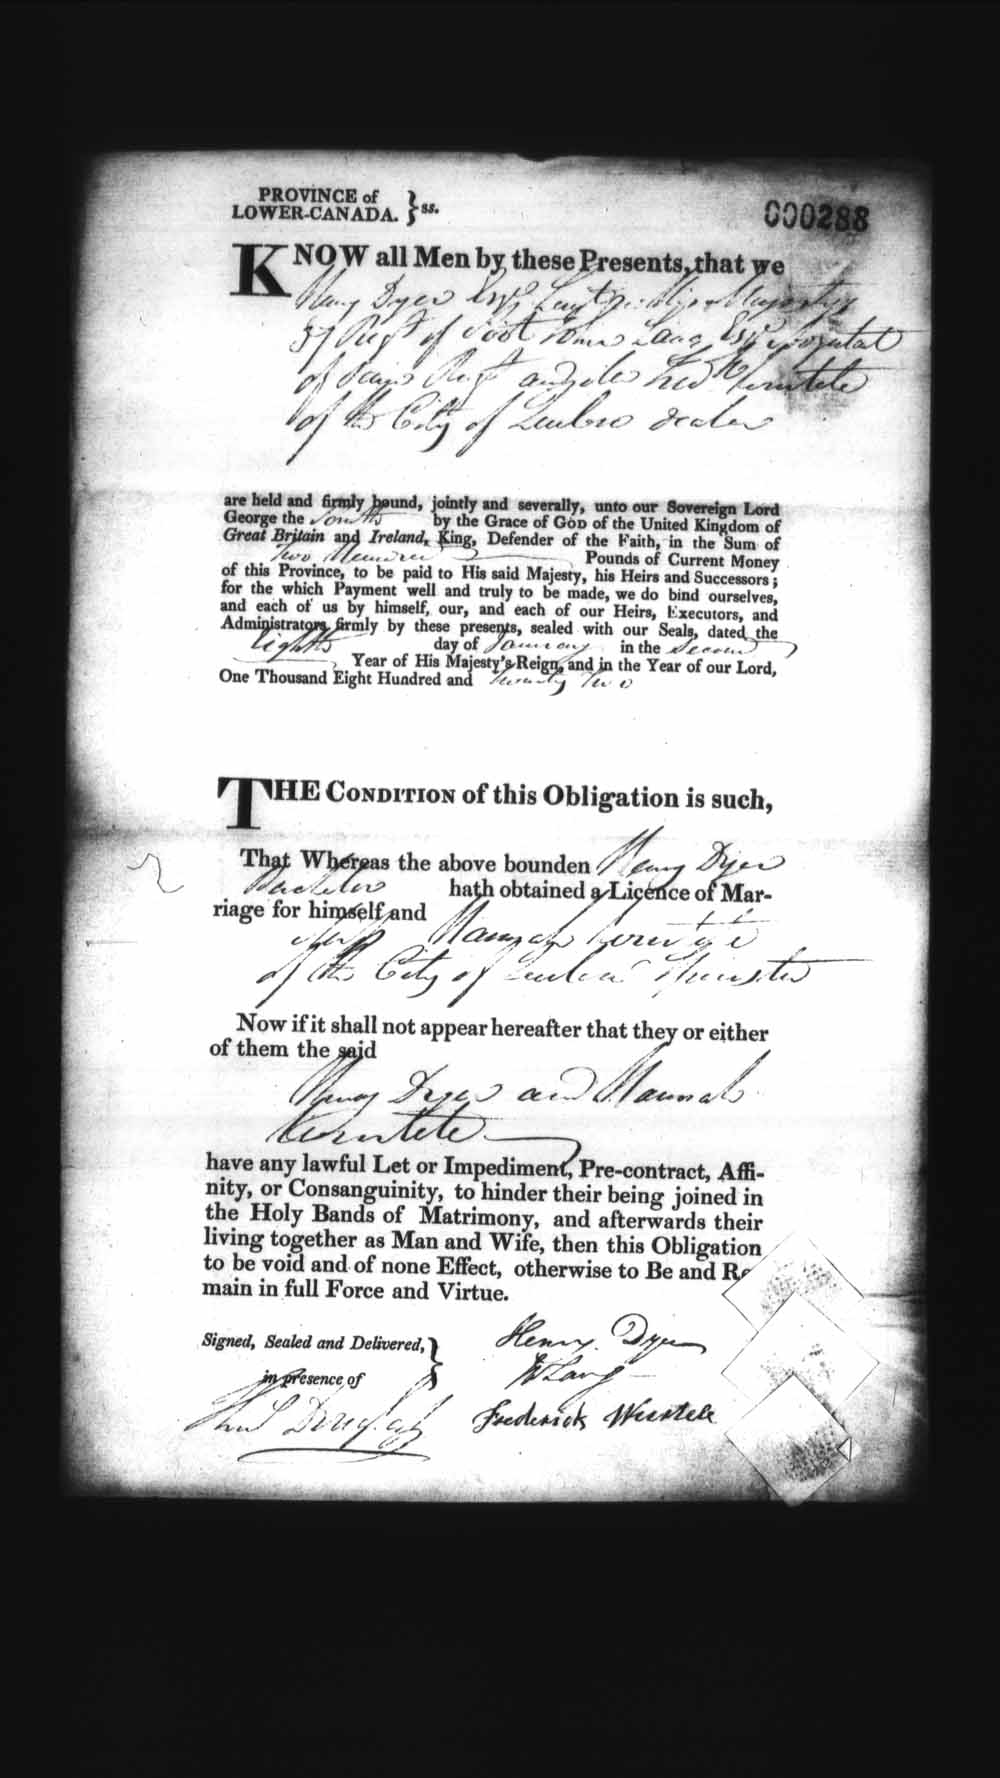 PROVINCE of
LOWER-CANADA. } ss.
000288
KNOW all Men by these Presents, that we
Henry Dyer Esqr Lieut in His Majestys
37 Regt of Foot Lang Esqr
of Regt and Fred
of the City of Quebec
are held and firmly bound, jointly and severally, unto our Sovereign Lord
George the Fourth by the Grace of GOD of the United Kingdom of
Great Britain and Ireland, King, Defender of the Faith, in the Sum of
Two Hundred Pounds of Current Money
of this Province, to be paid to His said Majesty, his Heirs and Successors;
for the which Payment well and truly to be made, we do bind ourselves,
and each of us by himself, our, and each of our Heirs, Executors, and
Administrators firmly by these presents, sealed with our Seals, dated the
Eighth day of January in the Second
Year of His Majesty's Reign, and in the Year of our Lord,
One Thousand Eight Hundred and Twenty Two
THE CONDITION of this Obligation is such,
That Whereas the above bounden Henry Dyer
Bachelor hath obtained a Licence of Mar-
riage for himself and
Hannah
of the City of Quebec Spinster
Now if it shall not appear hereafter that they or either
of them the said
Henry Dyer and Hannah
Wurtele
have any lawful Let or Impediment, Pre-contract, Affi-
nity, or Consanguinity, to hinder their being joined in
the Holy Bands of Matrimony, and afterwards their
living together as Man and Wife, then this Obligation
to be void and of none Effect, otherwise to Be and Re
main in full Force and Virtue.
Signed, Sealed and Delivered, }
in presence of
Henry Dyer
Lang
Frederick Wurtele